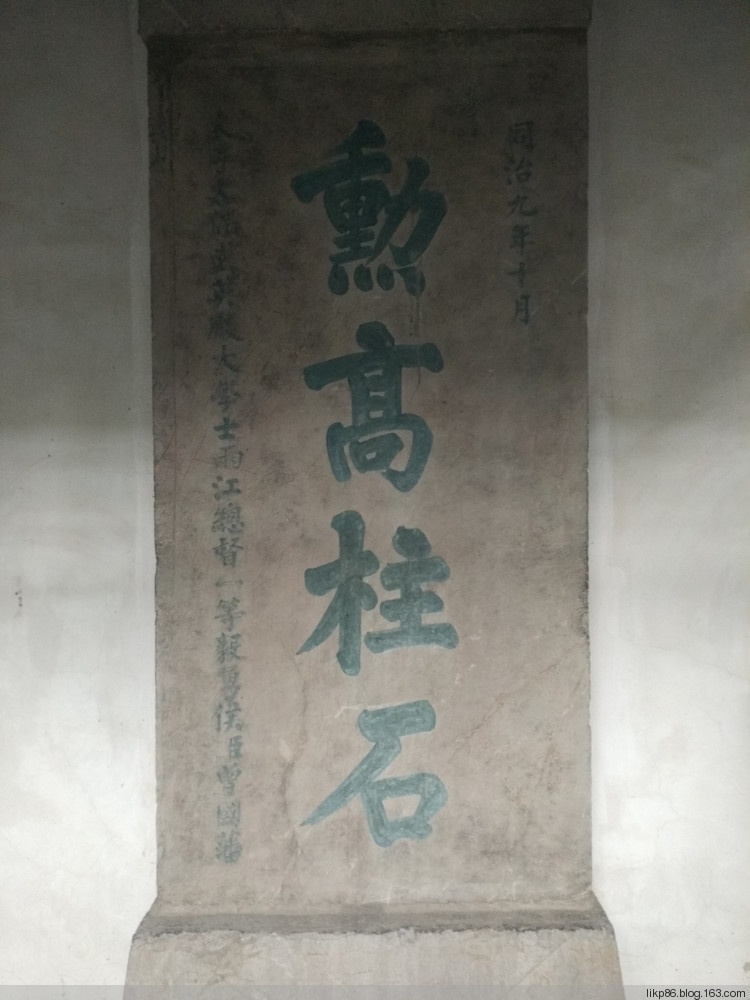 同治九年十月
勲髙柱石
太子太保武英殿大學士兩江總督一等毅勇侯臣曾國藩
likp86.blog.163.com